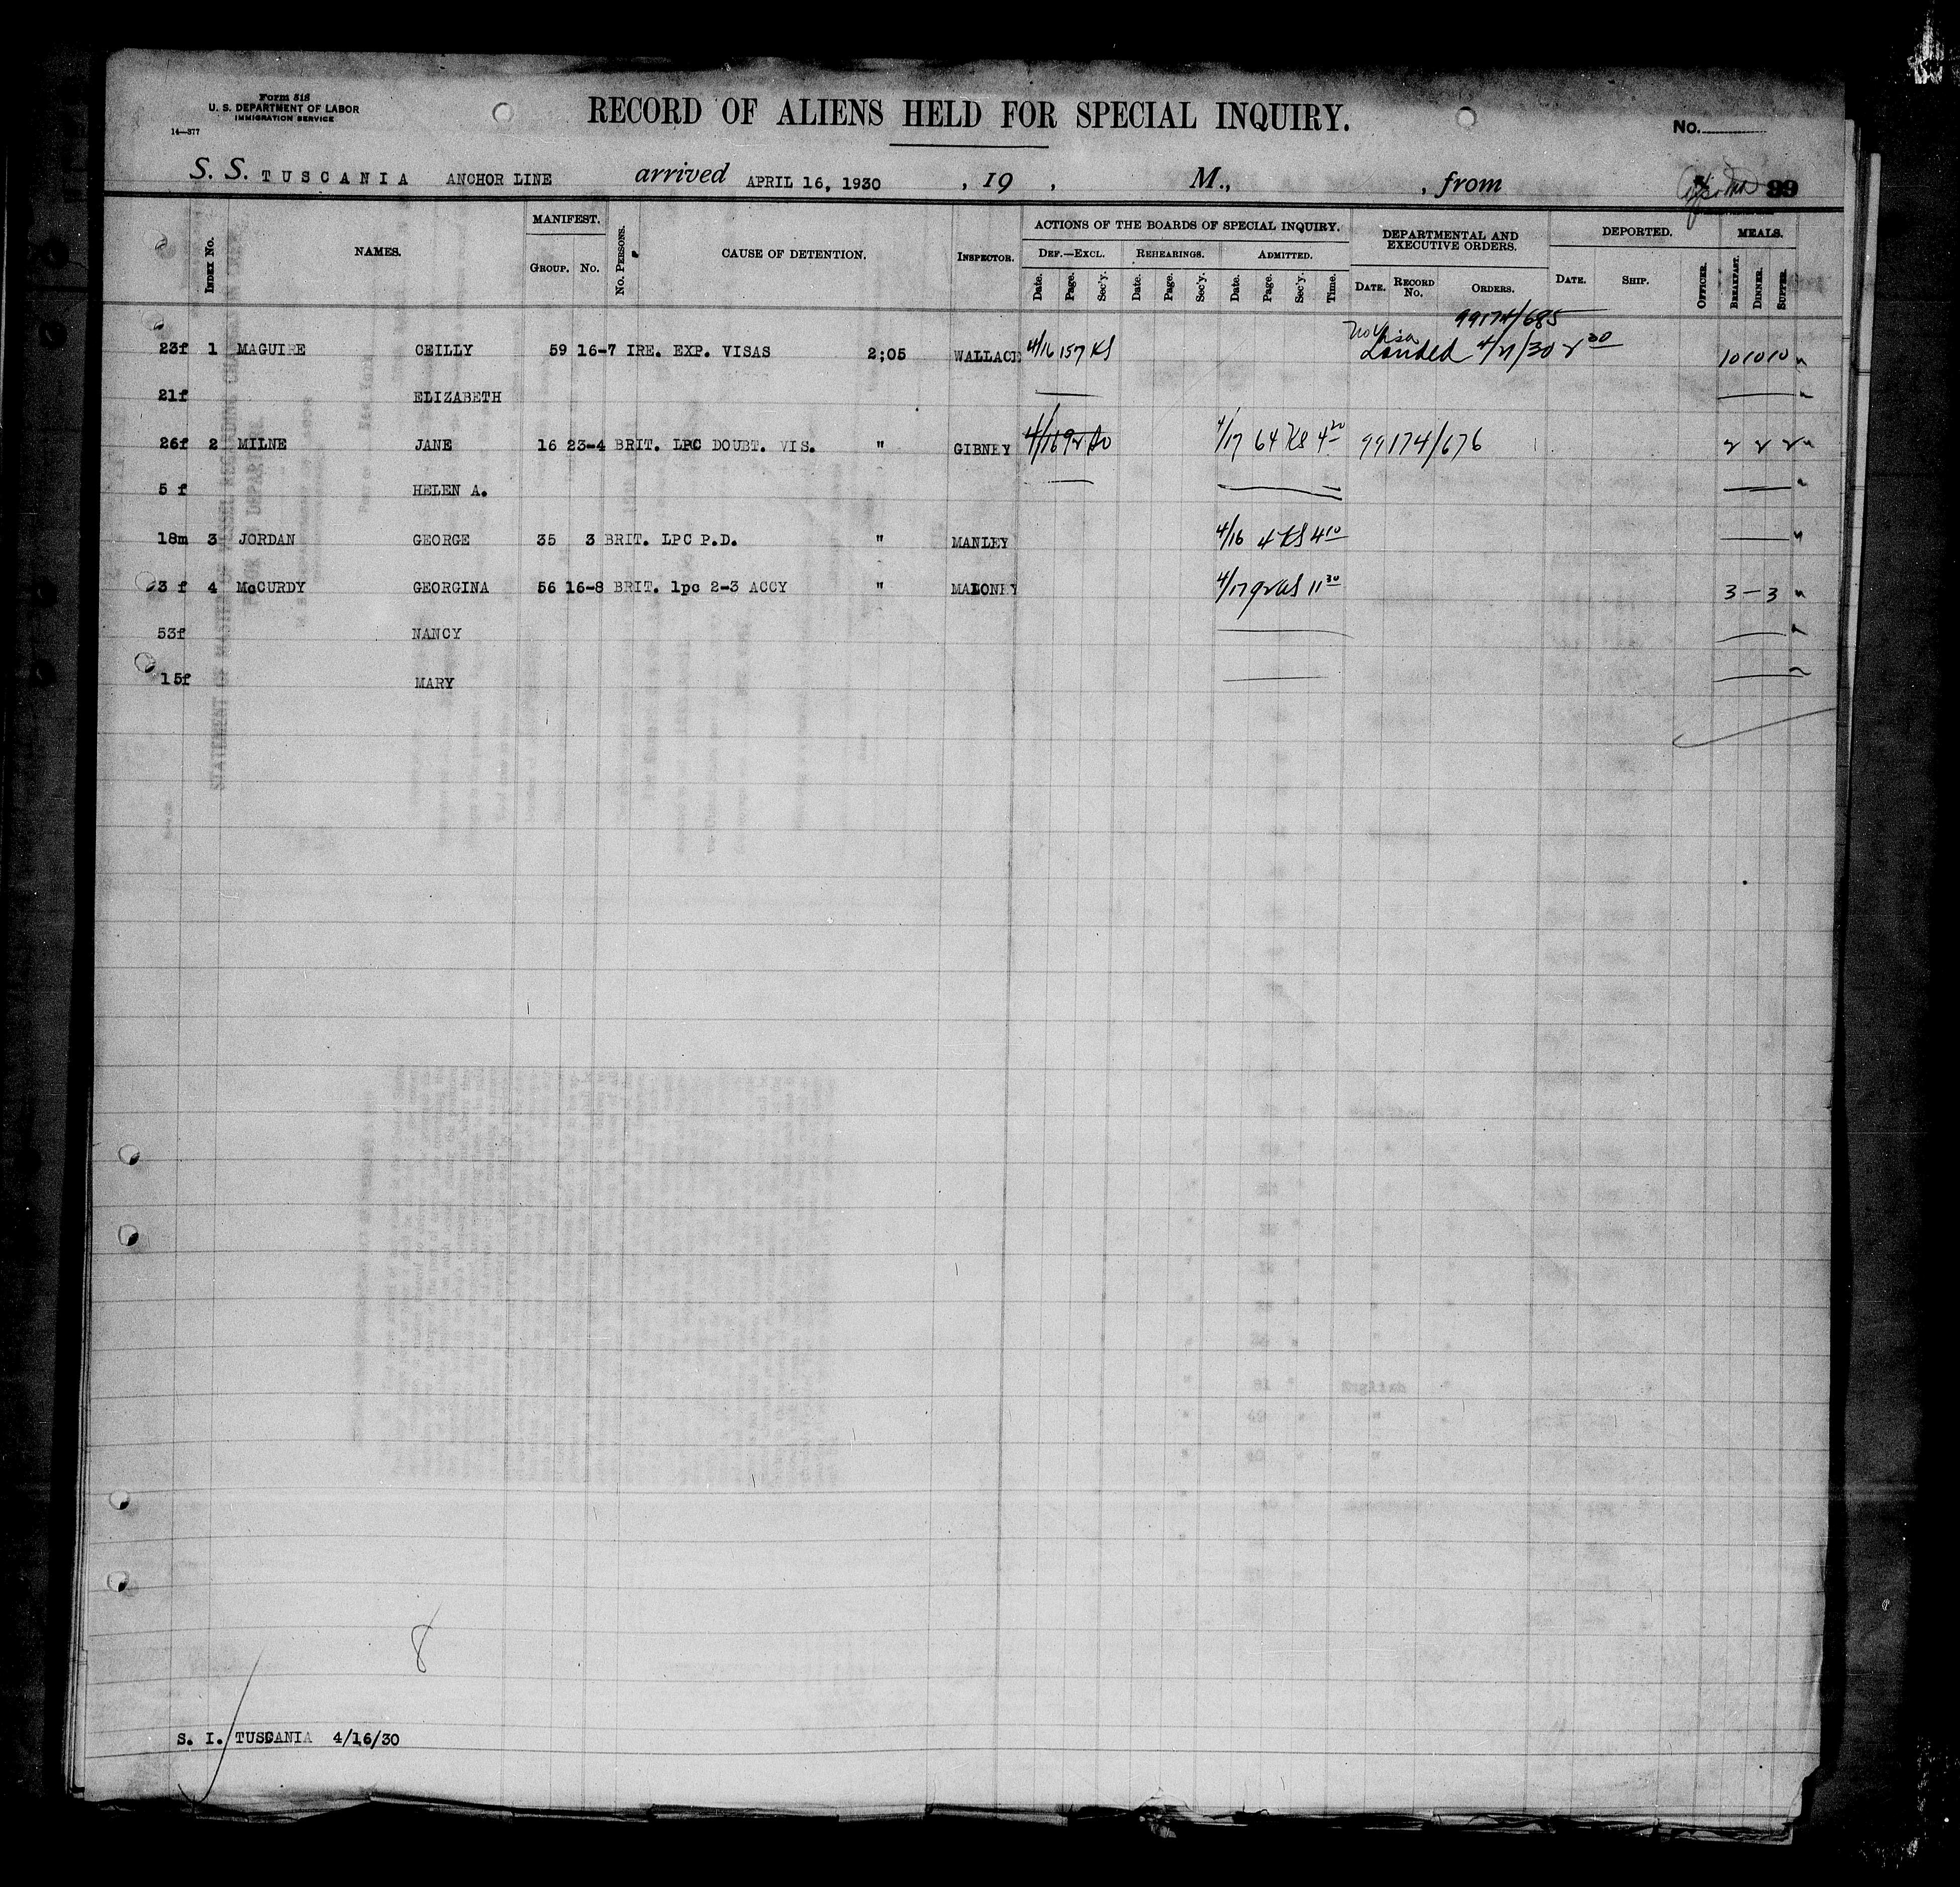 Form 518
U. S. DEPARTMENT OF LABOR
IMMIGRATION SERVICE
14—377
RECORD OF ALIENS HELD FOR SPECIAL INQUIRY.
No.
S. S. TUSCANIA ANCHOR LINE arrived APRIL 16, 1930 , 19 , M., , from 99
INDEX No. NAMES. MANIFEST. GROUP. No. No. PERSONS. CAUSE OF DETENTION. INSPECTOR. ACTIONS OF THE BOARDS OF SPECIAL INQUIRY. DEF.—EXCL. Date. Page. Sec'y. REHEARINGS. Date. Page. Sec'y. ADMITTED. Date. Page. Sec'y. Time. DEPARTMENTAL AND EXECUTIVE ORDERS. DATE. RECORD No. ORDERS. DEPORTED. DATE. SHIP. OFFICER. MEALS. BREAKFAST. DINNER. SUPPER.
99174/685
no visa
23f 1 MAGUIRE CEILLY 59 16-7 IRE. EXP. VISAS 2;05 WALLACE 4/16 157 KS Landed 4/21/30 2 30 10 10 10 "
21f ELIZABETH
26f 2 MILNE JANE 16 23-4 BRIT. LPC DOUBT. VIS. " GIBNEY 4/16 92 4/17 64 KS 4 20 99174/676 2 2 2 "
5 f HELEN A.
18m 3 JORDAN GEORGE 35 3 BRIT. LPC P.D. " MANLEY 4/16 4 KS 4 10
3 f 4 McCURDY GEORGINA 56 16-8 BRIT. lpc 2-3 ACCY " MALONEY 4/17 92 KS 11 30 3 — 3 "
53f NANCY
15f MARY
8
S. I. TUSCANIA 4/16/30